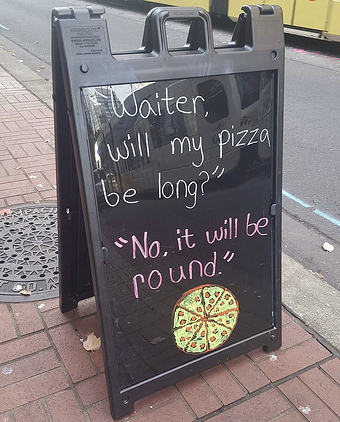 "Waiter,
will my pizza
be long?"
"No, it will be
round."